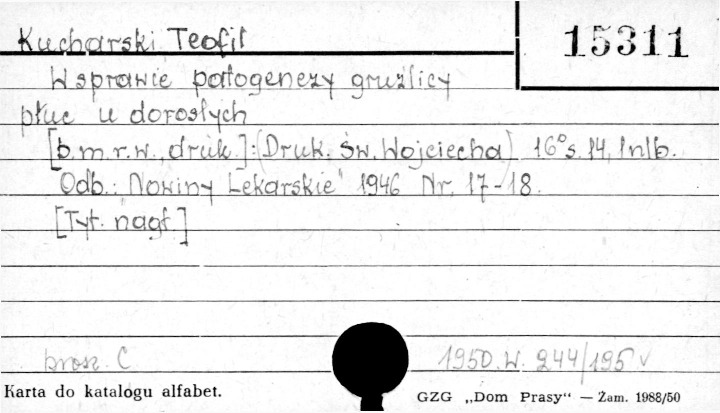 Kucharski Teofil
15311
W sprawie patogenezy gruźlicy
płuc u dorosłych
[b.m.r.w., druk.]:(Druk. Św. Wojciecha) 16° s. 14, 1nlb.
Odb.: "Nowiny Lekarskie" 1946 Nr. 17-18.
[Tyt. nagł.]
brosz. C
1950. W. 244/195 v
Karta do katalogu alfabet.
GZG „Dom Prasy“ — Zam. 1988/50